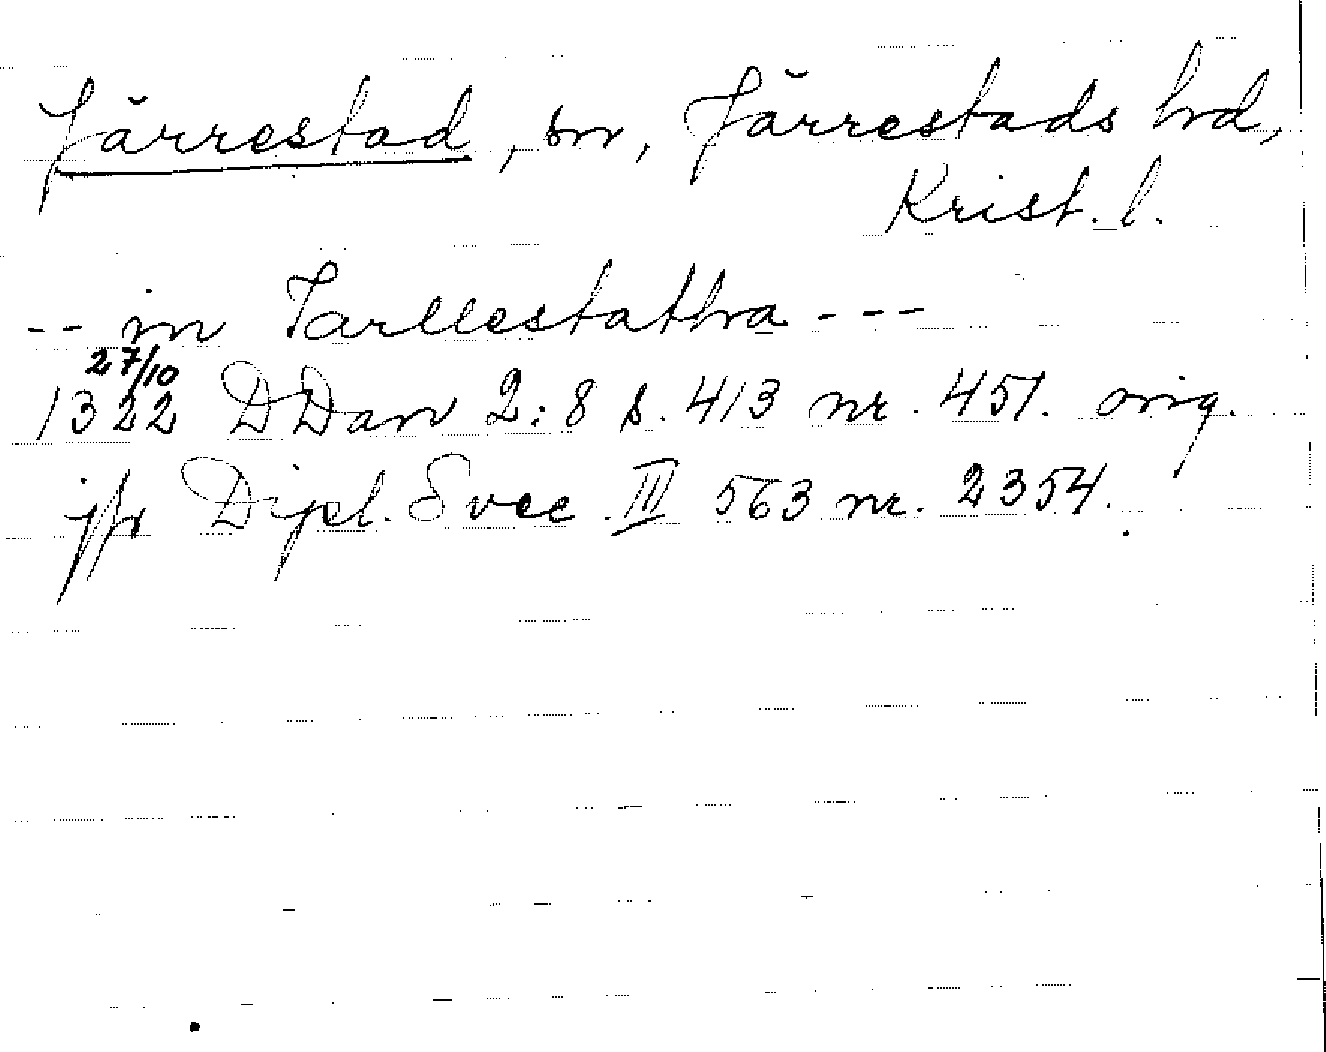 Järrestad, sn, Järrestads hd,
Krist. l.
-- in Iarllestathra ---
27/10
1322 DDan 2:8 s. 413 nr. 451. orig.
jfr Dipl. Svec. III 563 nr. 2354.